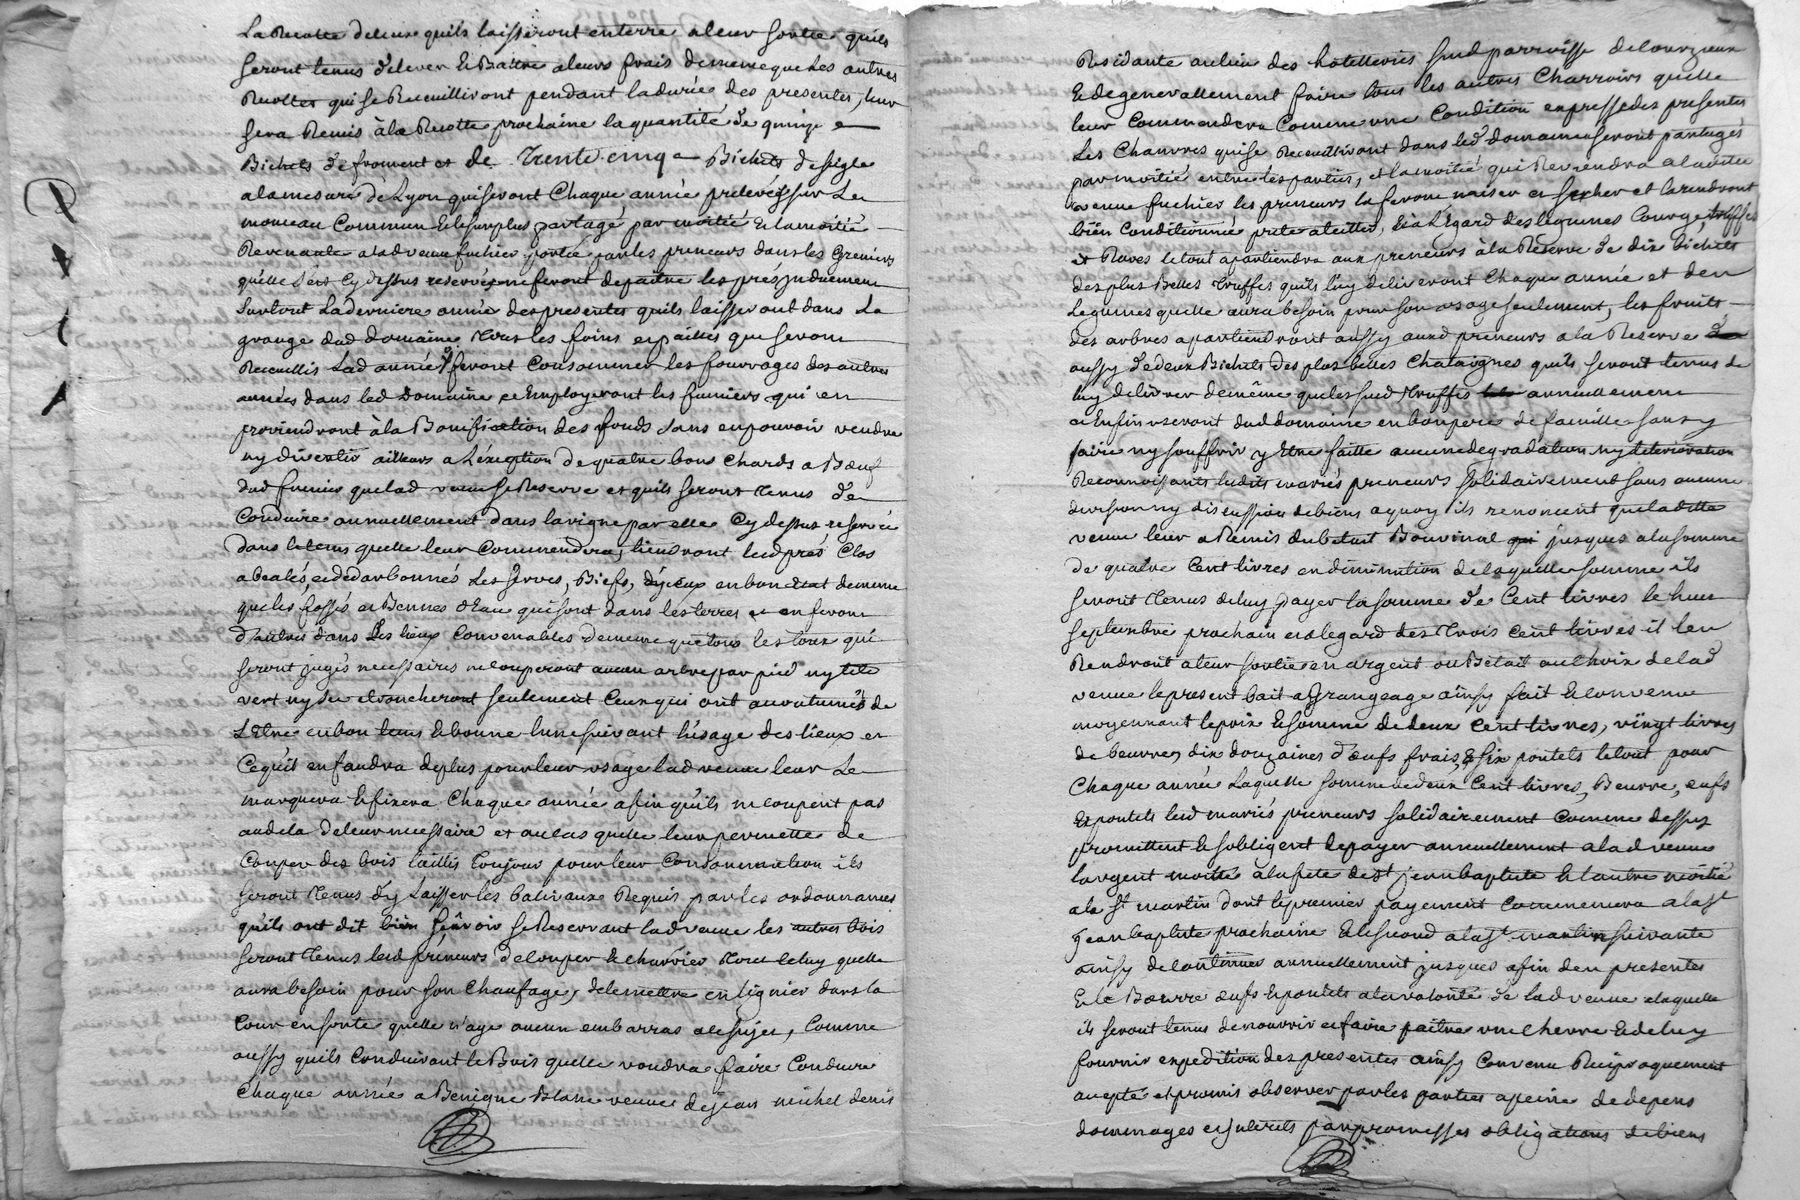 La Recolte delense quils laisseront enterre aleur sortie quils
seront tenus d'elever & Battre aleurs frais dememe que les autres
Recoltes qui se Recueilliront pendant ladurée des presentes, leur
sera Remis à la Recolte prochaine la quantité de quinze
Bichets de froment et de Trente cinq Bichets de seigle
alamesure de Lyon qui seront Chaque année prelevés sur Le
monceau Commun & lesurplus partagé par moitié & lamoitié
Revenante aladveuve fuchier portée parles preneurs dans les Greniers
quelle s'est Cy dessus reservée neferont depaitre les prés induement
surtout La derniere année des presentes quils laisseront dans La
grange dud domaine Tous les foins et pailles qui seront
Recueillis Lad année feront Consommer les fourrages des autres
années dans led Domaine et Employeront les fumiers qui en
proviendront à la Bonification des fonds sans enpouvoir vendre
ny divertir ailleurs a L'exception de quatre bons Chards a Bœuf
dud fumier que lad veuve se Reserve et quils seront Tenus de
Conduire annuellement dans la vigne par elle Cy dessus reservée
dans letems quelle leur Commandera, tiendront lesd prés Clos
abealés, et dedarbonnés Les serves, Biefs, en bon etat dememe
que les fossés et Bennes d'Eau qui sont dans les terres et en feront
d'autres dans Les lieux Convenables dememe que tous les
seront jugés necessaires necouperont aucun arbre par pied ny tete
vert ny sec ebrancheront seulement Ceux qui ont accoutumés de
L'Etre en bon tems & bonne lune suivant l'usage des lieux et
Cequil en faudra deplus pour leur usage ladveuve leur Le
marquera & fixera Chaque année afin quils necoupent pas
audela deleur necessaire et au cas quelle leur permette de
Couper des bois taillis Toujour pour leur Consommation ils
seront Tenus d'y Laisser les baliveaux Requis par les ordonnances
quils ont dit bien sçavoir se Reservant ladveuve les autres bois
seront Tenus lesd preneurs de Couper & charrier Tout celuy quelle
aura besoin pour son Chaufage, de lemettre en lignier dans la
Cour ensorte quelle n'aye aucun embarras acesujet, Comme
aussy quils Conduiront le Bois quelle voudra faire Conduire
Chaque année a Benigne Blanc veuve dejean michel denis
Residante aulieu des hotelleries sud parroisse delourzieux
& degenerallement faire tous les autres Charroirs quelle
leur Commandera Comme une Condition expresse des presentes
Les Chanvres qui se Recueilliront dans led domaine seront partagés
par moitié entre les parties, et lamoitié qui Reviendra aladitte
veuve fuchier les preneurs la feront naiser et secher et larendront
bien Conditionnée prete a teiller, & a L'égard des legumes Courge truffes
et Raves letout apartiendra aux preneurs à la Reserve de dix bichets
des plus Belles Truffes quils luy deliveront Chaque année et des
Legumes quelle aura besoin pour son usage seulement, les fruits
des arbres apartiendront aussy auxd preneurs a la Reserve
aussy de deux Bichets des plus belles Chataignes quils seront tenus de
luy delivrer demême que lessusd Truffes annuellement
et Enfin useront dud domaine en bonpere de famille sans y
faire ny souffrir y Etre faitte aucune degradation ny deterioration
Reconnoissants lesdits mariés preneurs solidairement sans aucune
division ny discussion debiens aquoy ils renoncent que laditte
veuve leur a Remis du betail Bouvinal jusques a la somme
de quatre Cent livres endiminution delaquelle somme ils
seront Tenus deluy payer la somme de Cent livres le huit
septembre prochain et alegard des Trois Cent livres il leu
Rendront a leur sortie en argent ou Betail au Choix delad
veuve le present bail a Grangeage ainsy fait & convenu
moyennant leprix & somme de deux Cent livres, vingt livres
de beurre, dix douzaines d'œufs frais, & six poulets letout pour
Chaque année Laquelle somme dedeux Cent livres, Beurre, œufs
& poulets lesd mariés preneurs solidairement Comme dessus
promettent & sobligent depayer annuellement alad veuve
largent moitié àlafete de St jean baptiste & lautre moitié
ala St martin dont le premier payement Commencera a la St
Jean baptiste prochaine & lesecond a la St martin suivante
ainsy de Continuer annuellement jusques afin des presentes
& le Beurre œufs & poulets a la volonté de ladveuve alaquelle
ils seront tenus denourrir et faire paitre une Chevre & de luy
fournir expedition des presentes ainsy Convenu Reciproquement
accepté et promis observer par les parties apeine de depens
dommages et interets par promesses obligations de biens